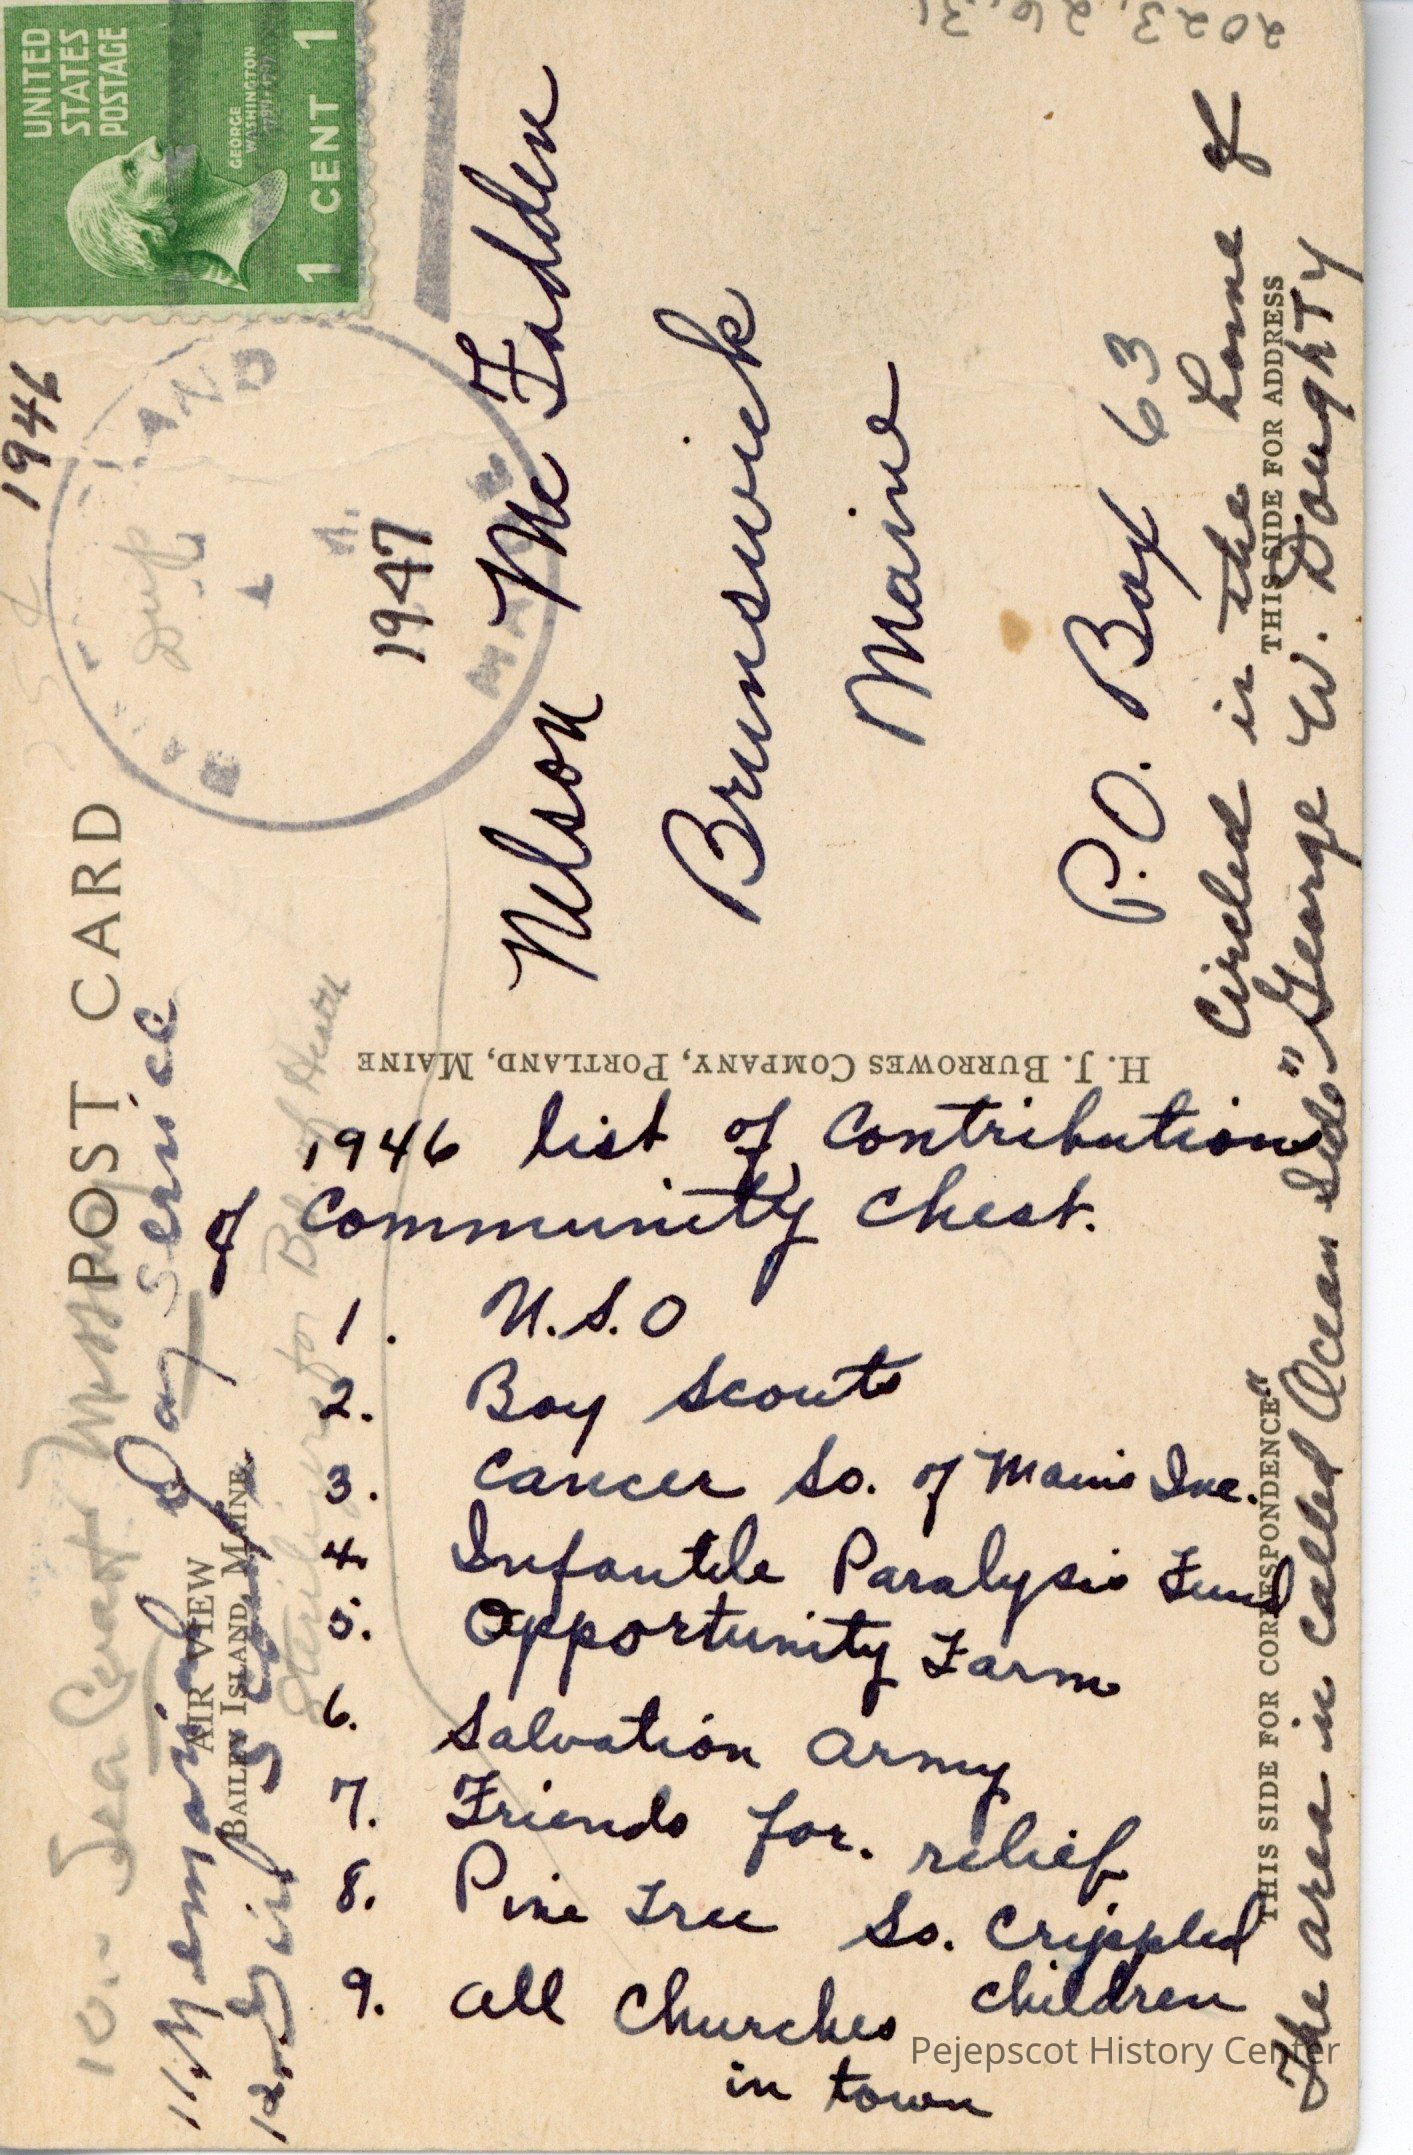 2023.26.31
UNITED
STATES
POSTAGE
GEORGE
WASHINGTON
1 CENT 1
1946
1947
POST CARD
Nelson McFadden
Brunswick
Maine
P.O. Box 63
Circled is the home of
"George W. Doughty
THIS SIDE FOR ADDRESS
H. J. BURROWES COMPANY, PORTLAND, MAINE
1946 list of Contributions
of Community Chest.
1. U.S.O
2. Boy Scouts
3. Cancer So. of Maine Inc.
4. Infantile Paralysis Fund
5. Opportunity Farm
6. Salvation Army
7. Friends for. relief
8. Pine Tree So. Crippled
children
9. all Churches
in town
10. Sea Coast Mission
11. Memorial Day Service
12. Girl
AIR VIEW
BAILEY ISLAND, MAINE
THIS SIDE FOR CORRESPONDENCE
The area is called Ocean Side"
Pejepscot History Center